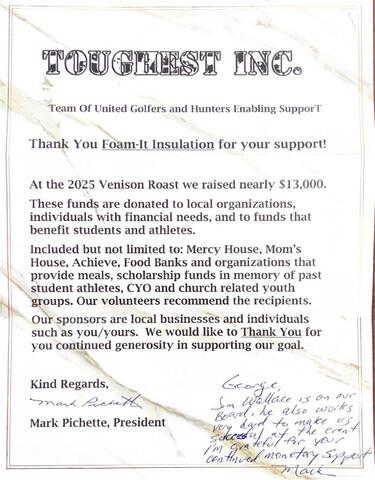 TOUGHEST INC.
Team Of United Golfers and Hunters Enabling SupporT
Thank You Foam-It Insulation for your support!
At the 2025 Venison Roast we raised nearly $13,000.
These funds are donated to local organizations,
individuals with financial needs, and to funds that
benefit students and athletes.
Included but not limited to: Mercy House, Mom's
House, Achieve, Food Banks and organizations that
provide meals, scholarship funds in memory of past
student athletes, CYO and church related youth
groups. Our volunteers recommend the recipients.
Our sponsors are local businesses and individuals
such as you/yours. We would like to Thank You for
you continued generosity in supporting our goal.
Kind Regards,
Mark Pichette
Mark Pichette, President
George,
Jim Wallace is on our
Board, he also works
very hard to make us
at the event.
I'm grateful for your
continued monetary support
Mark